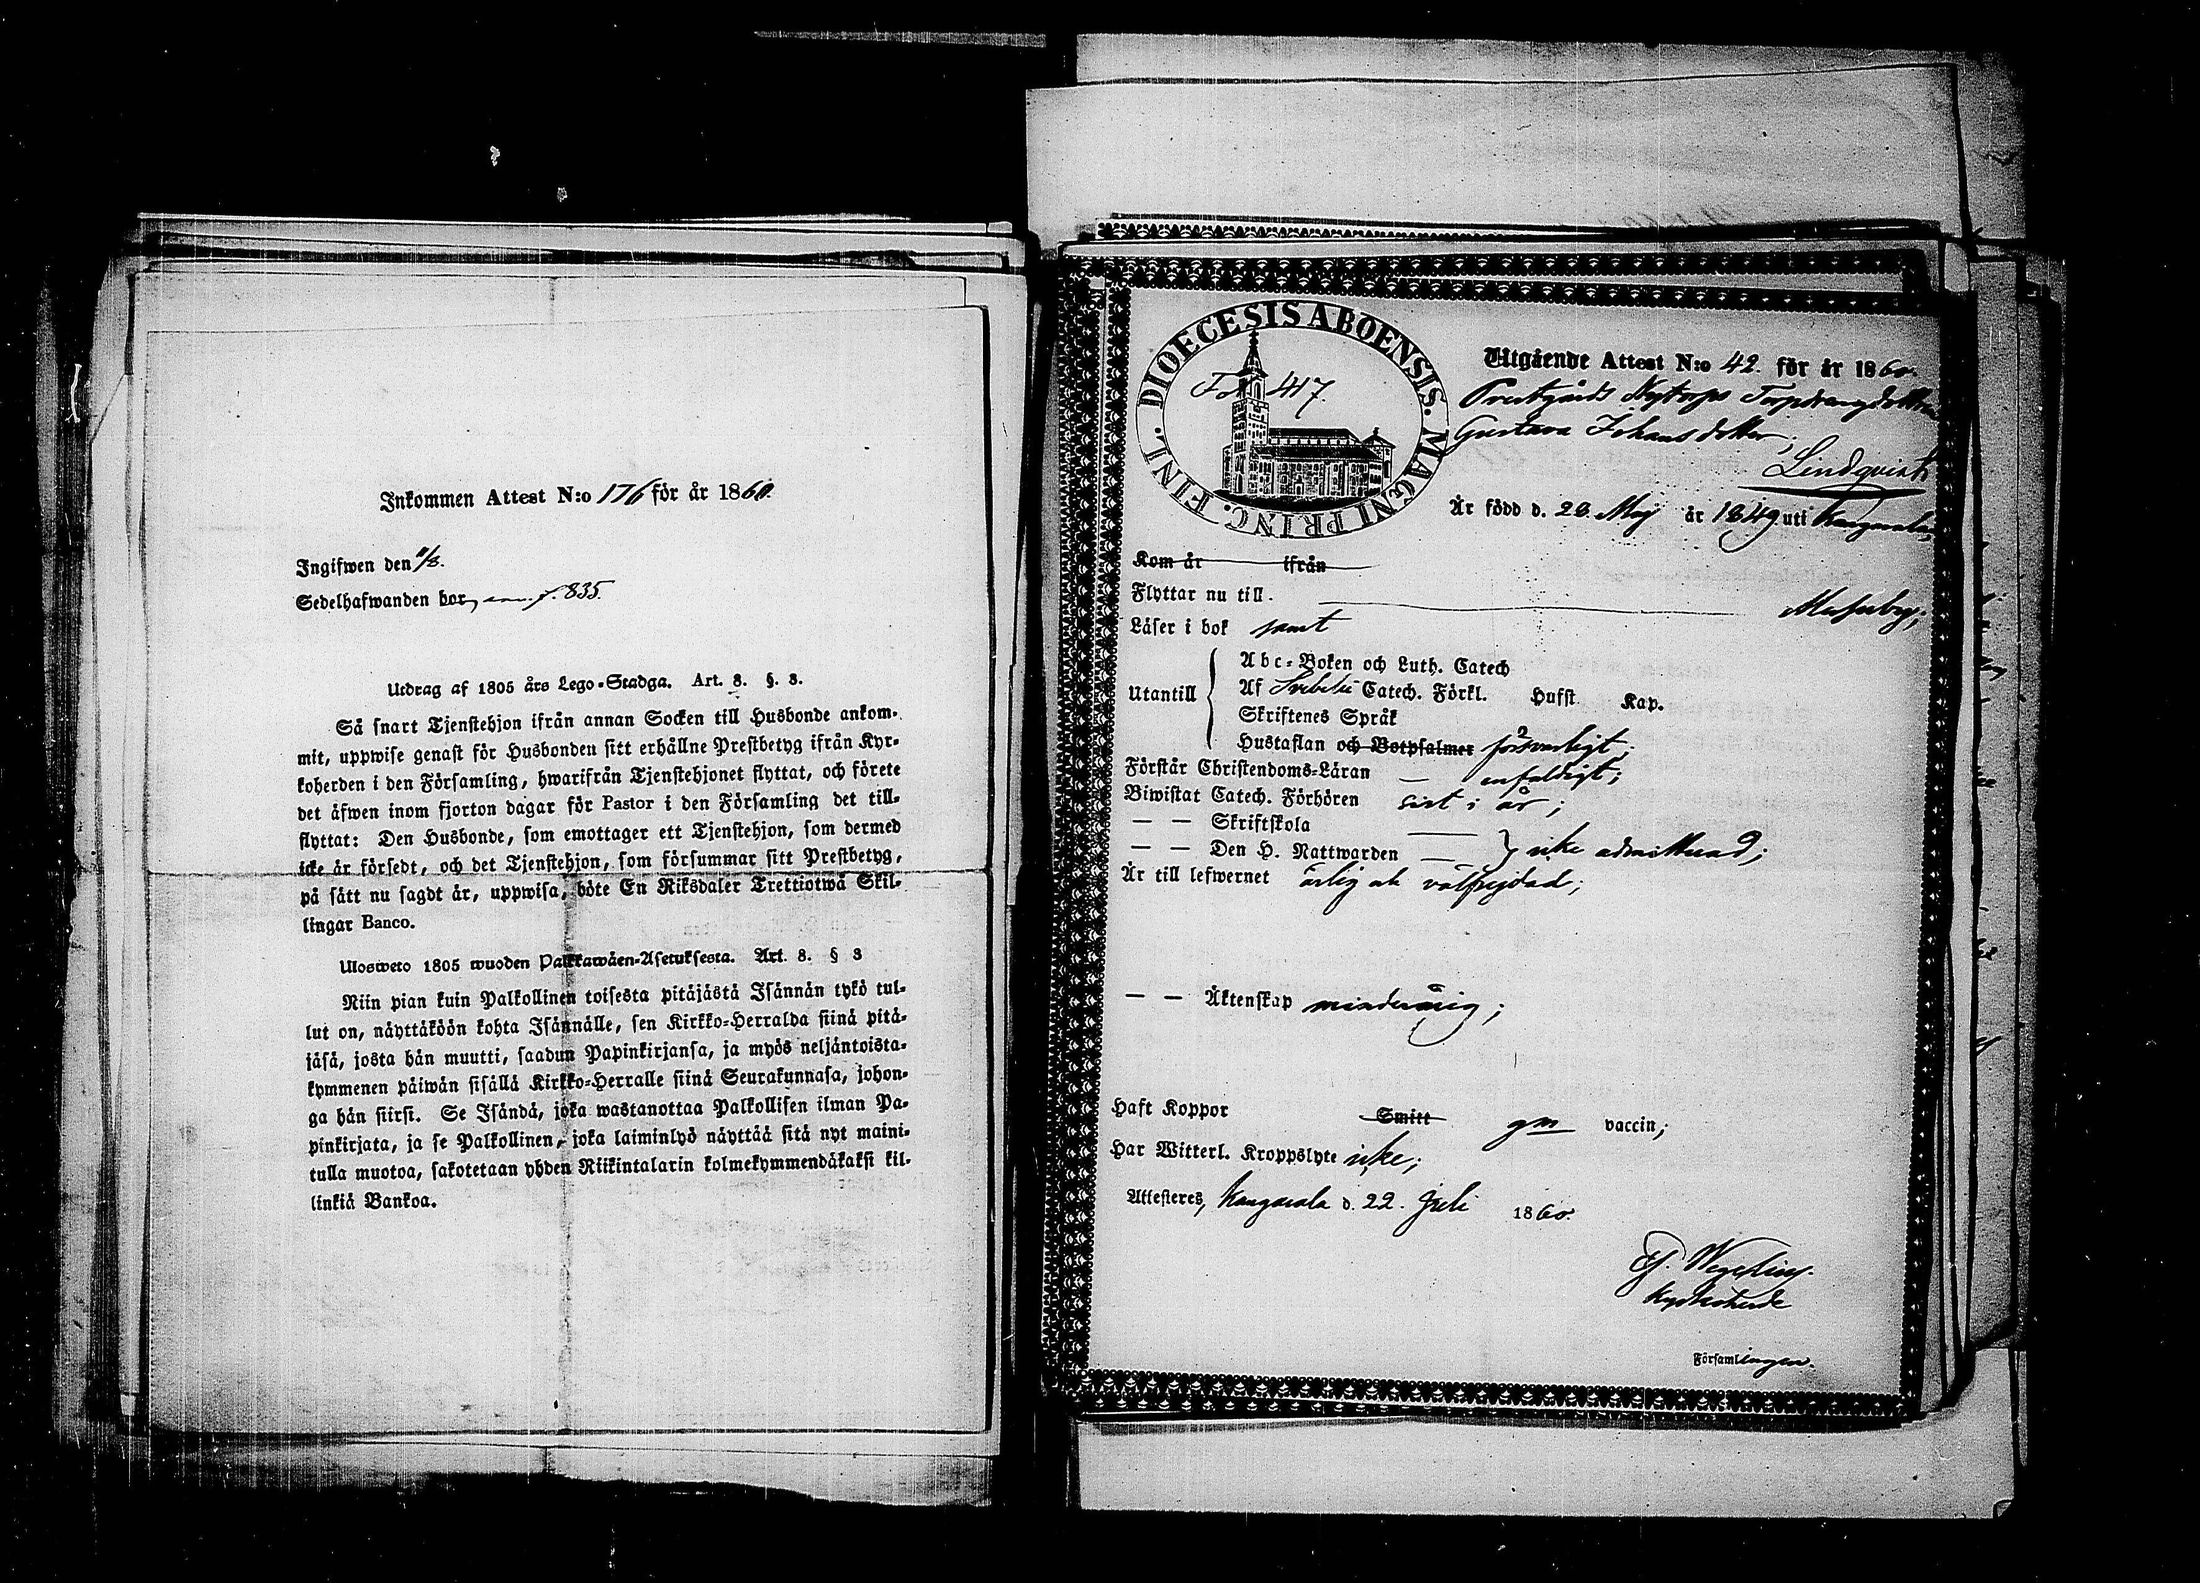 Inkommen Attest N:o 176 för år 1860.
Ingifwen den /8.
Sedelhafwanden bor f. 835.
Utdrag af 1805 års Lego-Stadga. Art. 8. §. 3.
Så snart Tjenstehjon ifrån annan Socken till Husbonde ankom-
mit, uppwise genast för Husbonden sitt erhållne Prestbetyg ifrån Kyr-
koherden i den Församling, hwarifrån Tjenstehjonet flyttat, och förete
det äfwen inom fjorton dagar för Pastor i den Församling det till-
flyttat: Den Husbonde, som emottager ett Tjenstehjon, som dermed
icke är försedt, och det Tjenstehjon, som försummar sitt Prestbetyg,
på sätt nu sagdt är, uppwisa, böte En Riksdaler Trettiotwå Skil-
lingar Banco.
Ulosweto 1805 wuoden Palkkawäen-Asetuksesta. Art. 8. § 3
Niin pian kuin Palkollinen toisesta pitäjästä Isännän tykö tul-
lut on, näyttäköön kohta Isännälle, sen Kirkko-Herralda siinä pitä-
jäsä, josta hän muutti, saadun Papinkirjansa, ja myös neljäntoista-
kymmenen päiwän sisällä Kirkko-Herralle siinä Seurakunnasa, johon-
ga hän siirsi. Se Isändä, joka wastanottaa Palkollisen ilman Pa-
pinkirjata, ja se Palkollinen, joka laiminlyö näyttää sitä nyt maini-
tulla muotoa, sakotetaan yhden Riikintalarin kolmekymmendäkaksi kil-
linkiä Bankoa.
DIOECESIS ABOENSIS. MAGNI PRINC. FINL.
Fol 417.
Utgående Attest N:o 42. för år 1860.
Prestgårds Nytorps Torpdrängdottren
Gustava Johansdotter,
Lindqvist
Är född d. 28. Maj år 1849 uti Kangasala,
Kom år ifrån
Flyttar nu till. Messuby;
Läser i bok samt
Utantill
Abc-Boken och Luth. Catech
Af Svebelii Catech. Förkl. Hufst Kap.
Skriftenes Språk
Hustaflan och Botpsalmer försvarligt;
Förstår Christendoms-Läran — enfaldigt;
Biwistat Catech. Förhören sist i år;
— — Skriftskola —
— — Den H. Nattwarden — } icke admitterad;
Är till lefwernet ärlig och välfrejdad;
— — Äktenskap minderårig;
Haft Koppor Smitt gm vaccin;
Har Witterl. Kroppslyte icke;
Attesteres, Kangasala d. 22. Juli 1860.
Wegelius.
Kyrkoherde
Församlingen.